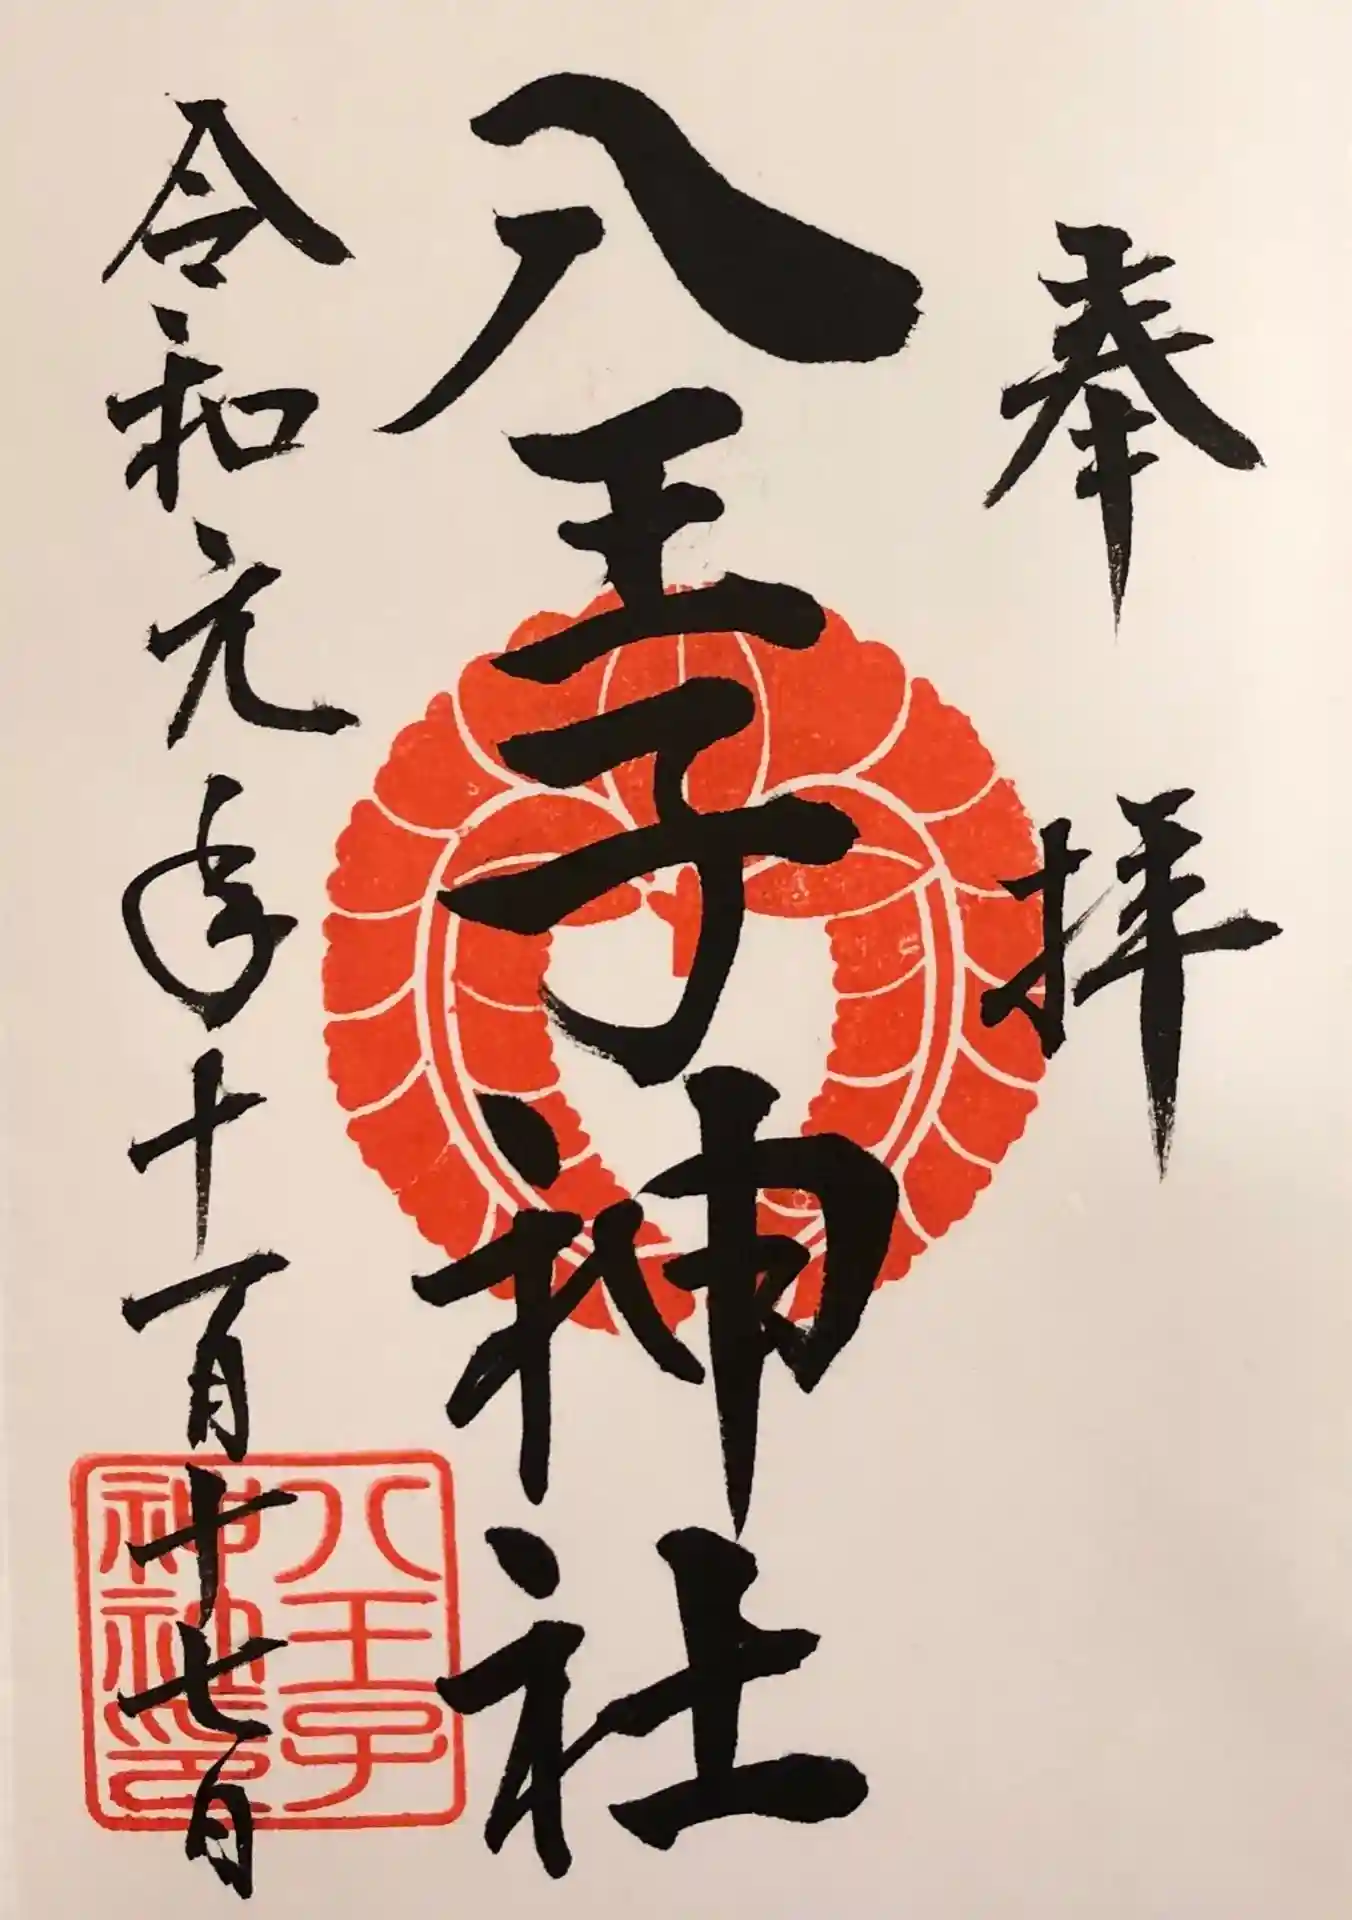 奉拝
八王子神社
令和元年十一月十七日
八王子
神社印